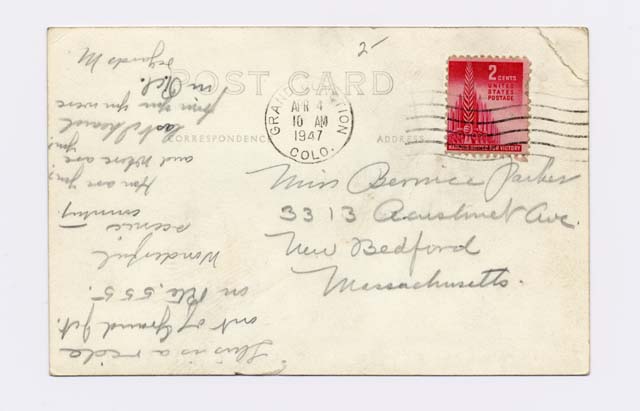 2
POST CARD
CORRESPONDENCE
ADDRESS
GRAND JUNCTION
APR 4
10 AM
1947
COLO.
2 CENTS
UNITED
STATES
POSTAGE
NATIONS UNITED FOR VICTORY
Miss Bernice Parker
3313 Acushnet Ave.
New Bedford
Massachusetts.
This is a ride
out of Grand Jct.
on Rte. 555.
Wonderful
scenic
country.
How are you?
and Where are you?
last I heard
from you you were
in
Regards M